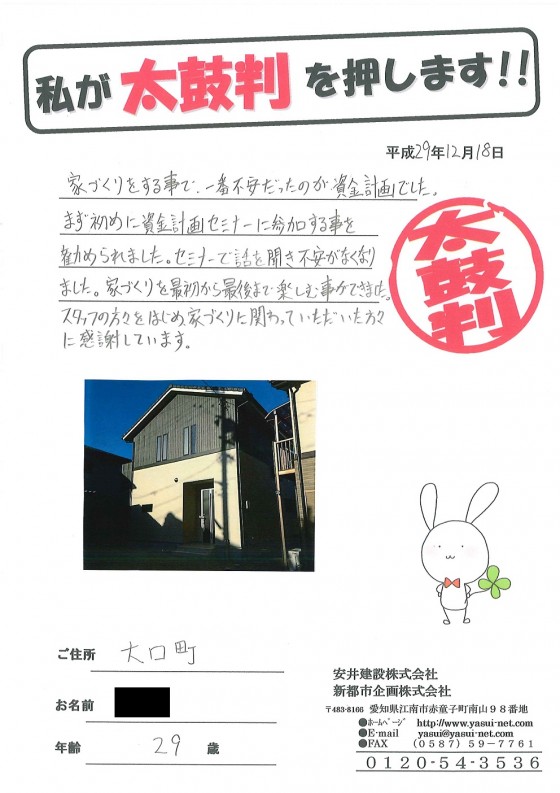 私が太鼓判を押します!!
平成29年12月18日
家づくりをする事で、一番不安だったのが資金計画でした。
まず初めに資金計画セミナーに参加する事を
勧められました。セミナーで話を聞き不安がなくなり
ました。家づくりを最初から最後まで楽しむ事ができました。
スタッフの方々をはじめ、家づくりに関わっていただいた方々
に感謝しています。
太鼓判
ご住所 大口町
お名前
年齢 29 歳
安井建設株式会社
新都市企画株式会社
〒483-8166 愛知県江南市赤童子町南山98番地
●ﾎｰﾑﾍﾟｰｼﾞ http://www.yasui-net.com
●E-mail yasui@yasui-net.com
●FAX (0587)59-7761
0120-54-3536